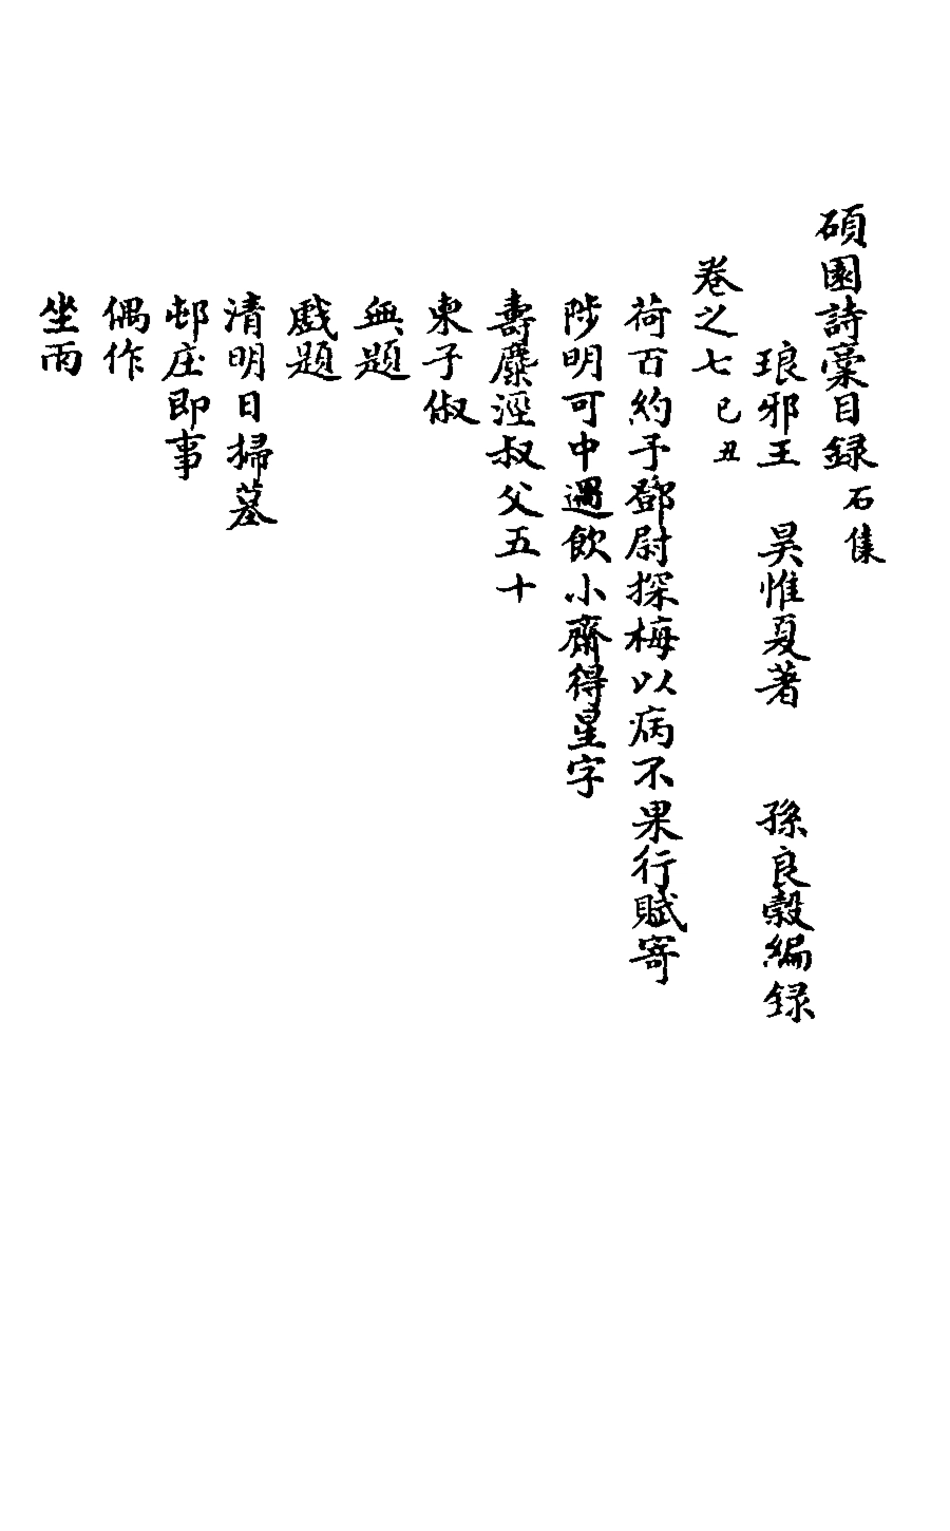 碩園詩稾目録 石集
琅邪王 昊惟夏著 孫良穀編録
卷之七 己丑
荷百約予鄧尉探梅以病不果行賦寄
陟明可中過飲小齋得星字
壽麋涇叔父五十
柬子俶
無題
戲題
清明日掃墓
邨庄即事
偶作
坐雨